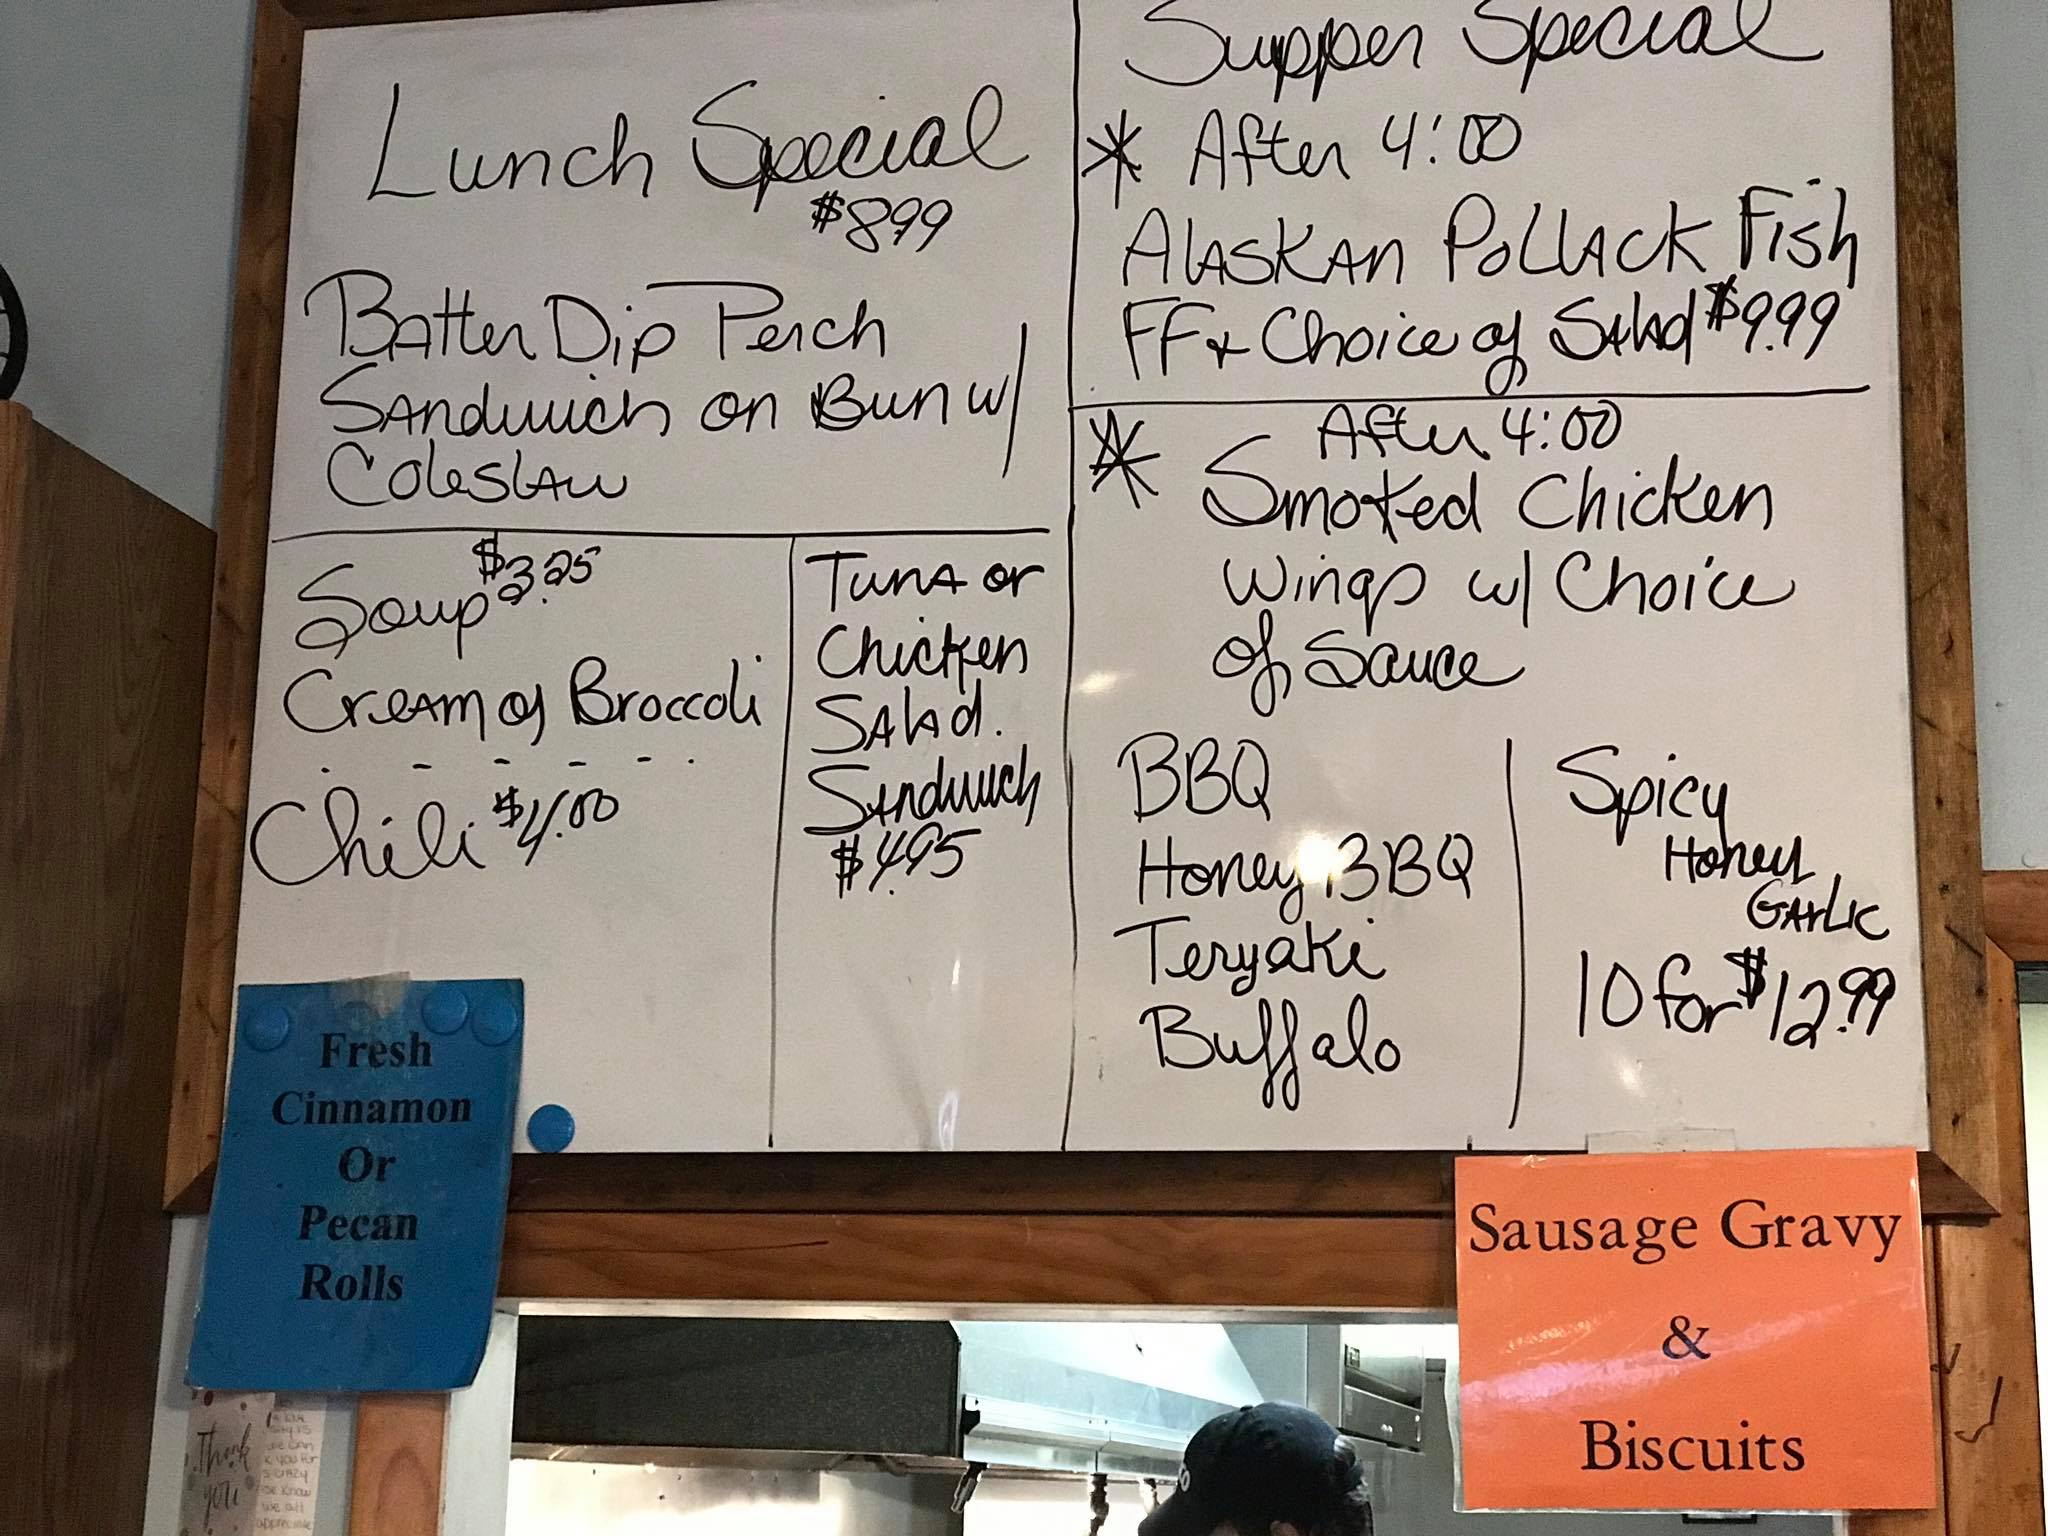 Lunch Special
$8.99
Batter Dip Perch
Sandwich on Bun w/
Coleslaw
Soup $3.25
Cream of Broccoli
Chili $4.00
Tuna or
Chicken
Salad
Sandwich
$4.95
Supper Special
* After 4:00
Alaskan Pollack Fish
FF + Choice of Salad $9.99
* After 4:00
Smoked Chicken
Wings w/ Choice
of Sauce
BBQ
Honey BBQ
Teryaki
Buffalo
Spicy
Honey
Garlic
10 for $12.99
Fresh
Cinnamon
Or
Pecan
Rolls
Sausage Gravy
&
Biscuits
Thank
you